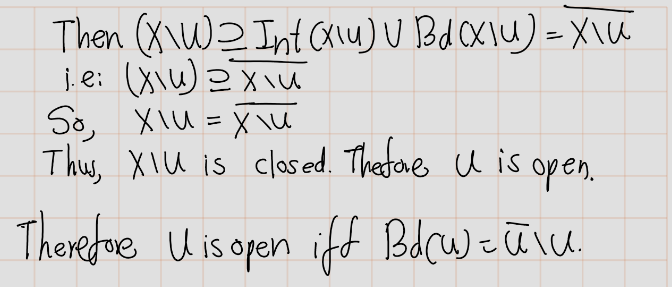 Then (X\U) ⊇ Int(X\U) ∪ Bd(X\U) = \overline{X\U}
i.e: (X\U) ⊇ \overline{X\U}
So, X\U = \overline{X\U}
Thus, X\U is closed. Thefore U is open.
Therefore U is open iff Bd(U) = Ū\U.